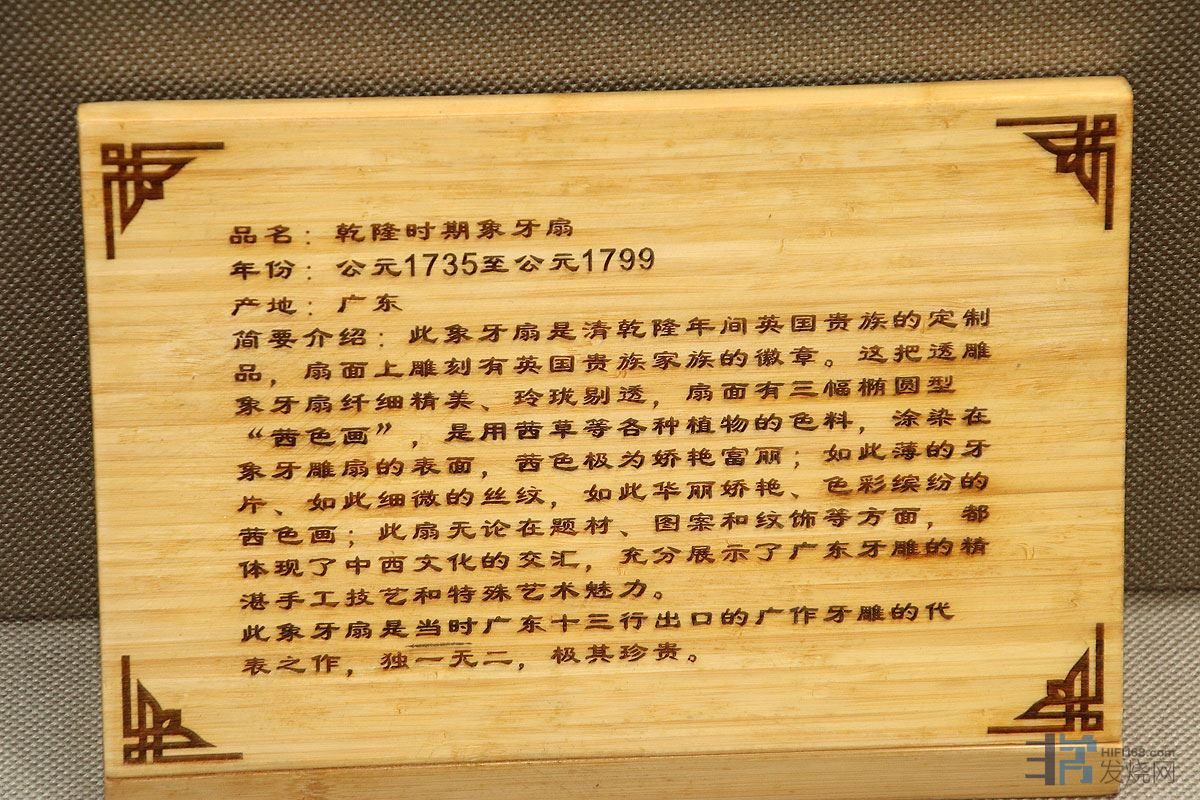 品名：乾隆时期象牙扇
年份：公元1735至公元1799
产地：广东
简要介绍：此象牙扇是清乾隆年间英国贵族的定制
品，扇面上雕刻有英国贵族家族的徽章。这把透雕
象牙扇纤细精美、玲珑剔透，扇面有三幅椭圆型
“茜色画”，是用茜草等各种植物的色料，涂染在
象牙雕扇的表面，茜色极为娇艳富丽；如此薄的牙
片、如此细微的丝纹，如此华丽娇艳、色彩缤纷的
茜色画；此扇无论在题材、图案和纹饰等方面，都
体现了中西文化的交汇，充分展示了广东牙雕的精
湛手工技艺和特殊艺术魅力。
此象牙扇是当时广东十三行出口的广作牙雕的代
表之作，独一无二，极其珍贵。
HIFI168.com
发烧网